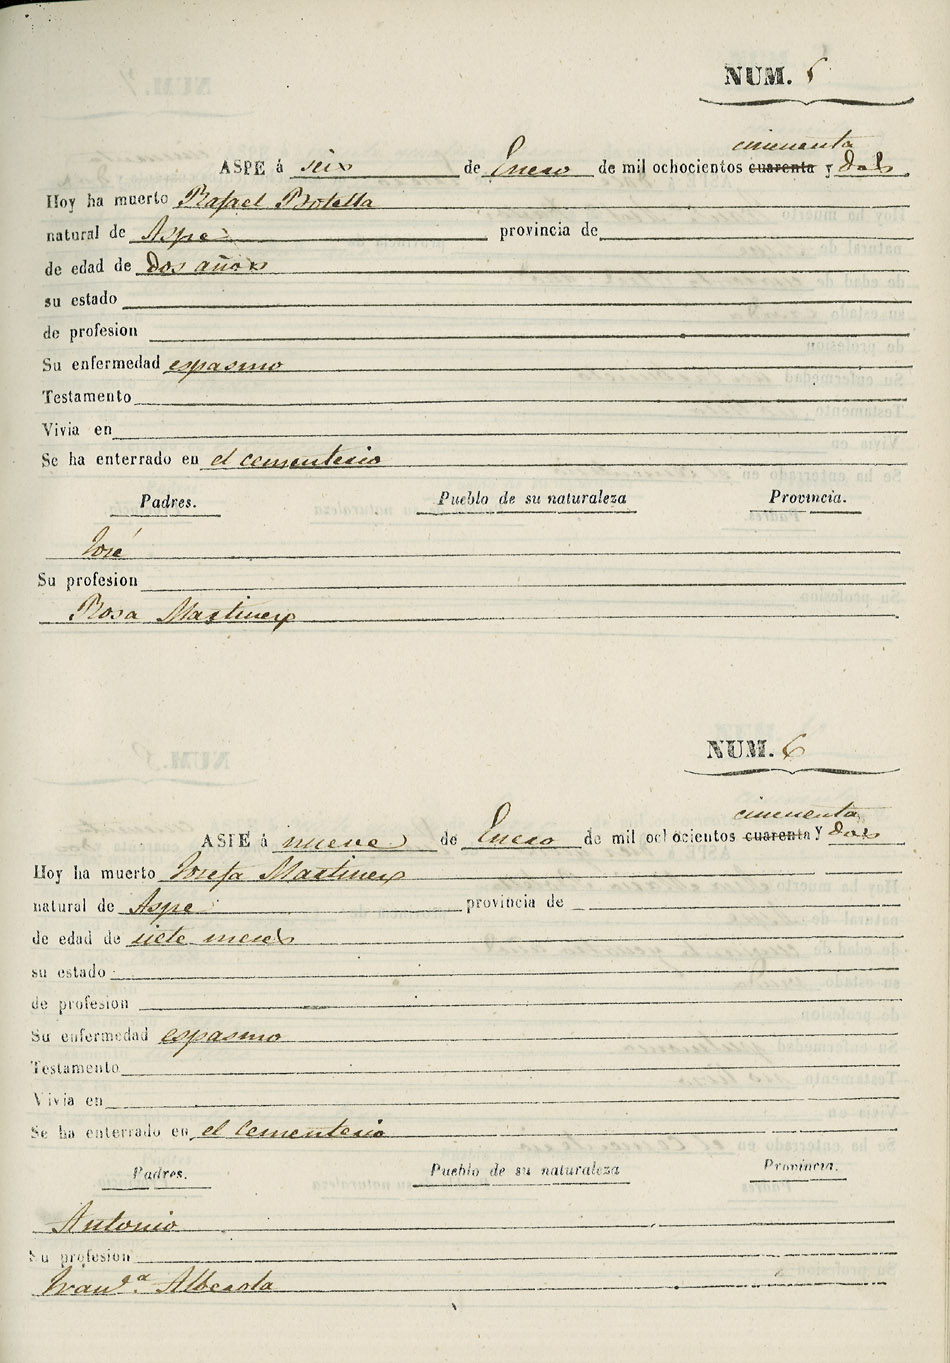 NUM. 5
cincuenta
ASPE á seis de Enero de mil ochocientos cuarenta y dos
Hoy ha muerto Rafael Botella
natural de Aspe provincia de
de edad de dos años
su estado
de profesion
Su enfermedad espasmo
Testamento
Vivia en
Se ha enterrado en el cementerio
Padres. Pueblo de su naturaleza Provincia.
José
Su profesion
Rosa Martinez
NUM. 6
cincuenta
ASPE á nueve de Enero de mil ochocientos cuarenta y dos
Hoy ha muerto Josefa Martinez
natural de Aspe provincia de
de edad de siete meses
su estado
de profesion
Su enfermedad espasmo
Testamento
Vivia en
Se ha enterrado en el cementerio
Padres. Pueblo de su naturaleza Provincia.
Antonio
Su profesion
Fran.ca Alberola